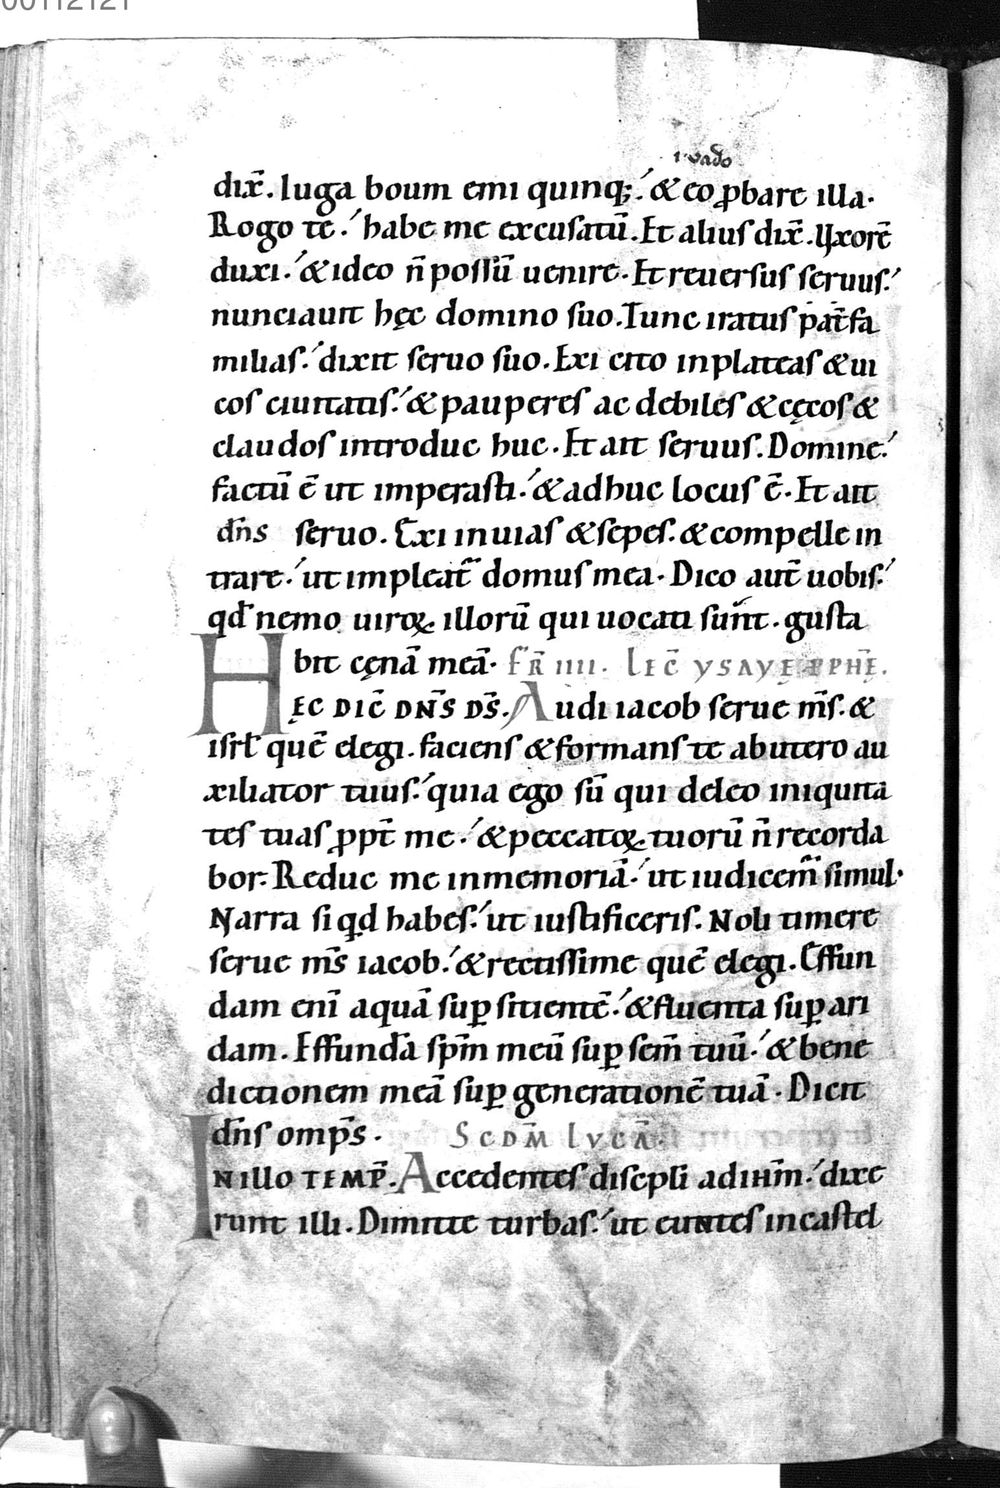 00112121
ı·vado
dix̅. Iuga boum emi quinq;.́ & eo ꝓbare illa.
Rogo te.́ habe me excusatū. Et alius dix̅. Uxorē
duxi.́ & ideo n̄ possū uenire. Et reuersus seruus.́
nunciauit hęc domino suo. Tunc iratus pat̄fa
milias.́ dixit seruo suo. Exi cito in plateas & ui
cos ciuitatis.́ & pauperes ac debiles & cęcos &
claudos introduc huc. Et ait seruus. Domine.́
factū ē ut imperasti.́ & adhuc locus ē. Et ait
dn̄s seruo. Exi in uias & sepes. & compelle in
trare.́ ut impleat̄ domus mea. Dico aut̄ uobis.́
qd̄ nemo uiroꝝ illorū qui uocati sunt. gusta
bit cęnā meā. FR̄ IIII. LEC̄ YSAYĘ PPHĘ̄.
HĘC DIC̄ DN̄S DS̄. Audi iacob serue ms̄. &
isrł quē elegi. faciens & formans te ab utero au
xiliator tuus.́ quia ego sū qui deleo iniquita
tes tuas ꝓpt̄ me.́ & peccatoꝝ tuorū n̄ recorda
bor. Reduc me in memoriā.́ ut iudicem̄ simul.
Narra si qd habes.́ ut iustificeris. Noli timere
serue ms̄ iacob.́ & rectissime quē elegi. Effun
dam eni̅ aquā suꝑ sitientē.́ & fluenta suꝑ ari
dam. Effundā sp̄m meū suꝑ sem̄ tuū.́ & bene
dictionem meā suꝑ generationē tuā. Dicit
dn̄s omp̄s. SCDM̄ LVCĀ.
IN ILLO TEMP̄. Accedentes discipli ad ihm̄.́ dixe
runt illi. Dimitte turbas.́ ut euntes in castel